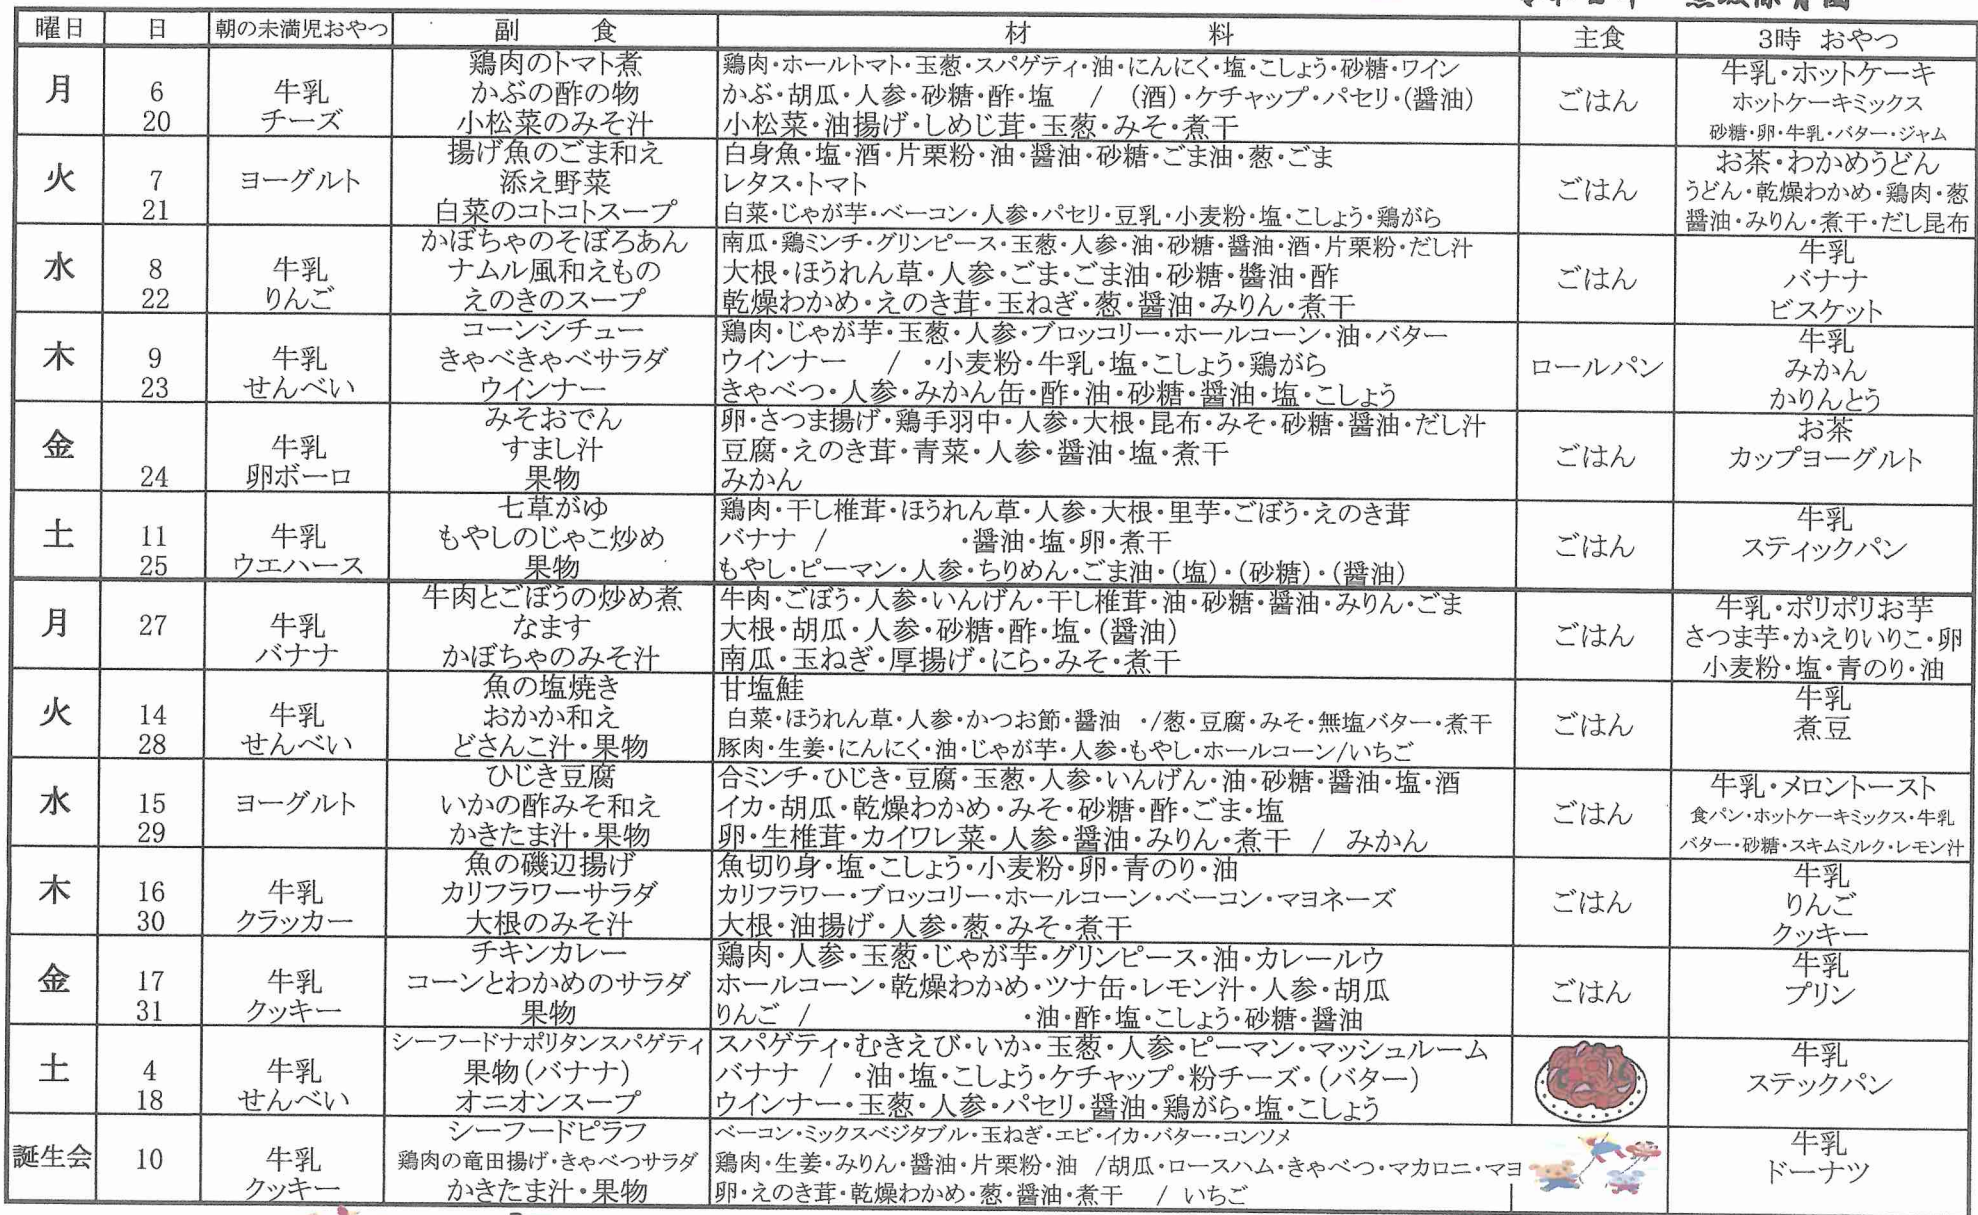 曜日 日 朝の未満児おやつ 副 食 材 料 主食 3時 おやつ
月
6
20
牛乳
チーズ
鶏肉のトマト煮
かぶの酢の物
小松菜のみそ汁
鶏肉・ホールトマト・玉葱・スパゲティ・油・にんにく・塩・こしょう・砂糖・ワイン
かぶ・胡瓜・人参・砂糖・酢・塩 / (酒)・ケチャップ・パセリ・(醤油)
小松菜・油揚げ・しめじ茸・玉葱・みそ・煮干
ごはん
牛乳・ホットケーキ
ホットケーキミックス
砂糖・卵・牛乳・バター・ジャム
火
7
21
ヨーグルト
揚げ魚のごま和え
添え野菜
白菜のコトコトスープ
白身魚・塩・酒・片栗粉・油・醤油・砂糖・ごま油・葱・ごま
レタス・トマト
白菜・じゃが芋・ベーコン・人参・パセリ・豆乳・小麦粉・塩・こしょう・鶏がら
ごはん
お茶・わかめうどん
うどん・乾燥わかめ・鶏肉・葱
醤油・みりん・煮干・だし昆布
水
8
22
牛乳
りんご
かぼちゃのそぼろあん
ナムル風和えもの
えのきのスープ
南瓜・鶏ミンチ・グリンピース・玉葱・人参・油・砂糖・醤油・酒・片栗粉・だし汁
大根・ほうれん草・人参・ごま・ごま油・砂糖・醤油・酢
乾燥わかめ・えのき茸・玉ねぎ・葱・醤油・みりん・煮干
ごはん
牛乳
バナナ
ビスケット
木
9
23
牛乳
せんべい
コーンシチュー
きゃべきゃべサラダ
ウインナー
鶏肉・じゃが芋・玉葱・人参・ブロッコリー・ホールコーン・油・バター
ウインナー / ・小麦粉・牛乳・塩・こしょう・鶏がら
きゃべつ・人参・みかん缶・酢・油・砂糖・醤油・塩・こしょう
ロールパン
牛乳
みかん
かりんとう
金
24
牛乳
卵ボーロ
みそおでん
すまし汁
果物
卵・さつま揚げ・鶏手羽中・人参・大根・昆布・みそ・砂糖・醤油・だし汁
豆腐・えのき茸・青菜・人参・醤油・塩・煮干
みかん
ごはん
お茶
カップヨーグルト
土
11
25
牛乳
ウエハース
七草がゆ
もやしのじゃこ炒め
果物
鶏肉・干し椎茸・ほうれん草・人参・大根・里芋・ごぼう・えのき茸
バナナ / ・醤油・塩・卵・煮干
もやし・ピーマン・人参・ちりめん・ごま油・(塩)・(砂糖)・(醤油)
ごはん
牛乳
スティックパン
月
27
牛乳
バナナ
牛肉とごぼうの炒め煮
なます
かぼちゃのみそ汁
牛肉・ごぼう・人参・いんげん・干し椎茸・油・砂糖・醤油・みりん・ごま
大根・胡瓜・人参・砂糖・酢・塩・(醤油)
南瓜・玉ねぎ・厚揚げ・にら・みそ・煮干
ごはん
牛乳・ポリポリお芋
さつま芋・かえりいりこ・卵
小麦粉・塩・青のり・油
火
14
28
牛乳
せんべい
魚の塩焼き
おかか和え
どさんこ汁・果物
甘塩鮭
白菜・ほうれん草・人参・かつお節・醤油 ・/葱・豆腐・みそ・無塩バター・煮干
豚肉・生姜・にんにく・油・じゃが芋・人参・もやし・ホールコーン/いちご
ごはん
牛乳
煮豆
水
15
29
ヨーグルト
ひじき豆腐
いかの酢みそ和え
かきたま汁・果物
合ミンチ・ひじき・豆腐・玉葱・人参・いんげん・油・砂糖・醤油・塩・酒
イカ・胡瓜・乾燥わかめ・みそ・砂糖・酢・ごま・塩
卵・生椎茸・カイワレ菜・人参・醤油・みりん・煮干 / みかん
ごはん
牛乳・メロントースト
食パン・ホットケーキミックス・牛乳
バター・砂糖・スキムミルク・レモン汁
木
16
30
牛乳
クラッカー
魚の磯辺揚げ
カリフラワーサラダ
大根のみそ汁
魚切り身・塩・こしょう・小麦粉・卵・青のり・油
カリフラワー・ブロッコリー・ホールコーン・ベーコン・マヨネーズ
大根・油揚げ・人参・葱・みそ・煮干
ごはん
牛乳
りんご
クッキー
金
17
31
牛乳
クッキー
チキンカレー
コーンとわかめのサラダ
果物
鶏肉・人参・玉葱・じゃが芋・グリンピース・油・カレールウ
ホールコーン・乾燥わかめ・ツナ缶・レモン汁・人参・胡瓜
りんご / ・油・酢・塩・こしょう・砂糖・醤油
ごはん
牛乳
プリン
土
4
18
牛乳
せんべい
シーフードナポリタンスパゲティ
果物(バナナ)
オニオンスープ
スパゲティ・むきえび・いか・玉葱・人参・ピーマン・マッシュルーム
バナナ / ・油・塩・こしょう・ケチャップ・粉チーズ・(バター)
ウインナー・玉葱・人参・パセリ・醤油・鶏がら・塩・こしょう
牛乳
ステックパン
誕生会
10
牛乳
クッキー
シーフードピラフ
鶏肉の竜田揚げ・きゃべつサラダ
かきたま汁・果物
ベーコン・ミックスベジタブル・玉ねぎ・エビ・イカ・バター・コンソメ
鶏肉・生姜・みりん・醤油・片栗粉・油 /胡瓜・ロースハム・きゃべつ・マカロニ・マヨ
卵・えのき茸・乾燥わかめ・葱・醤油・煮干 / いちご
牛乳
ドーナツ